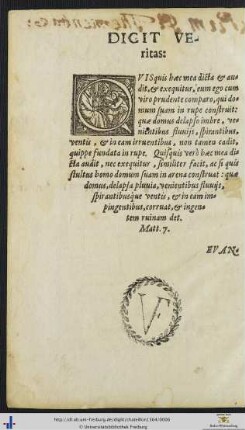 DICIT VE-
ritas:
QVISquis hæc mea dicta & au-
dit, & exequitur, eum ego cum
viro prudente comparo, qui do-
mum suam in rupe construit:
quæ domus delapso imbre, ve-
nientibus fluuijs, spirantibus,
ventis, & in eam irruentibus, non tamen cadit,
quippe fundata in rupe. Quisquis verò hæc mea di-
cta audit, nec exequitur, similiter facit, ac si quis
stultus homo domum suam in arena construat: quæ
domus, delapsa pluuia, venientibus fluuijs,
spirantibusque ventis, & in eam im-
pingentibus, corruat, & ingen-
tem ruinam det.
Matt. 7.
EVAN-
VF
© Universitätsbibliothek Freiburg